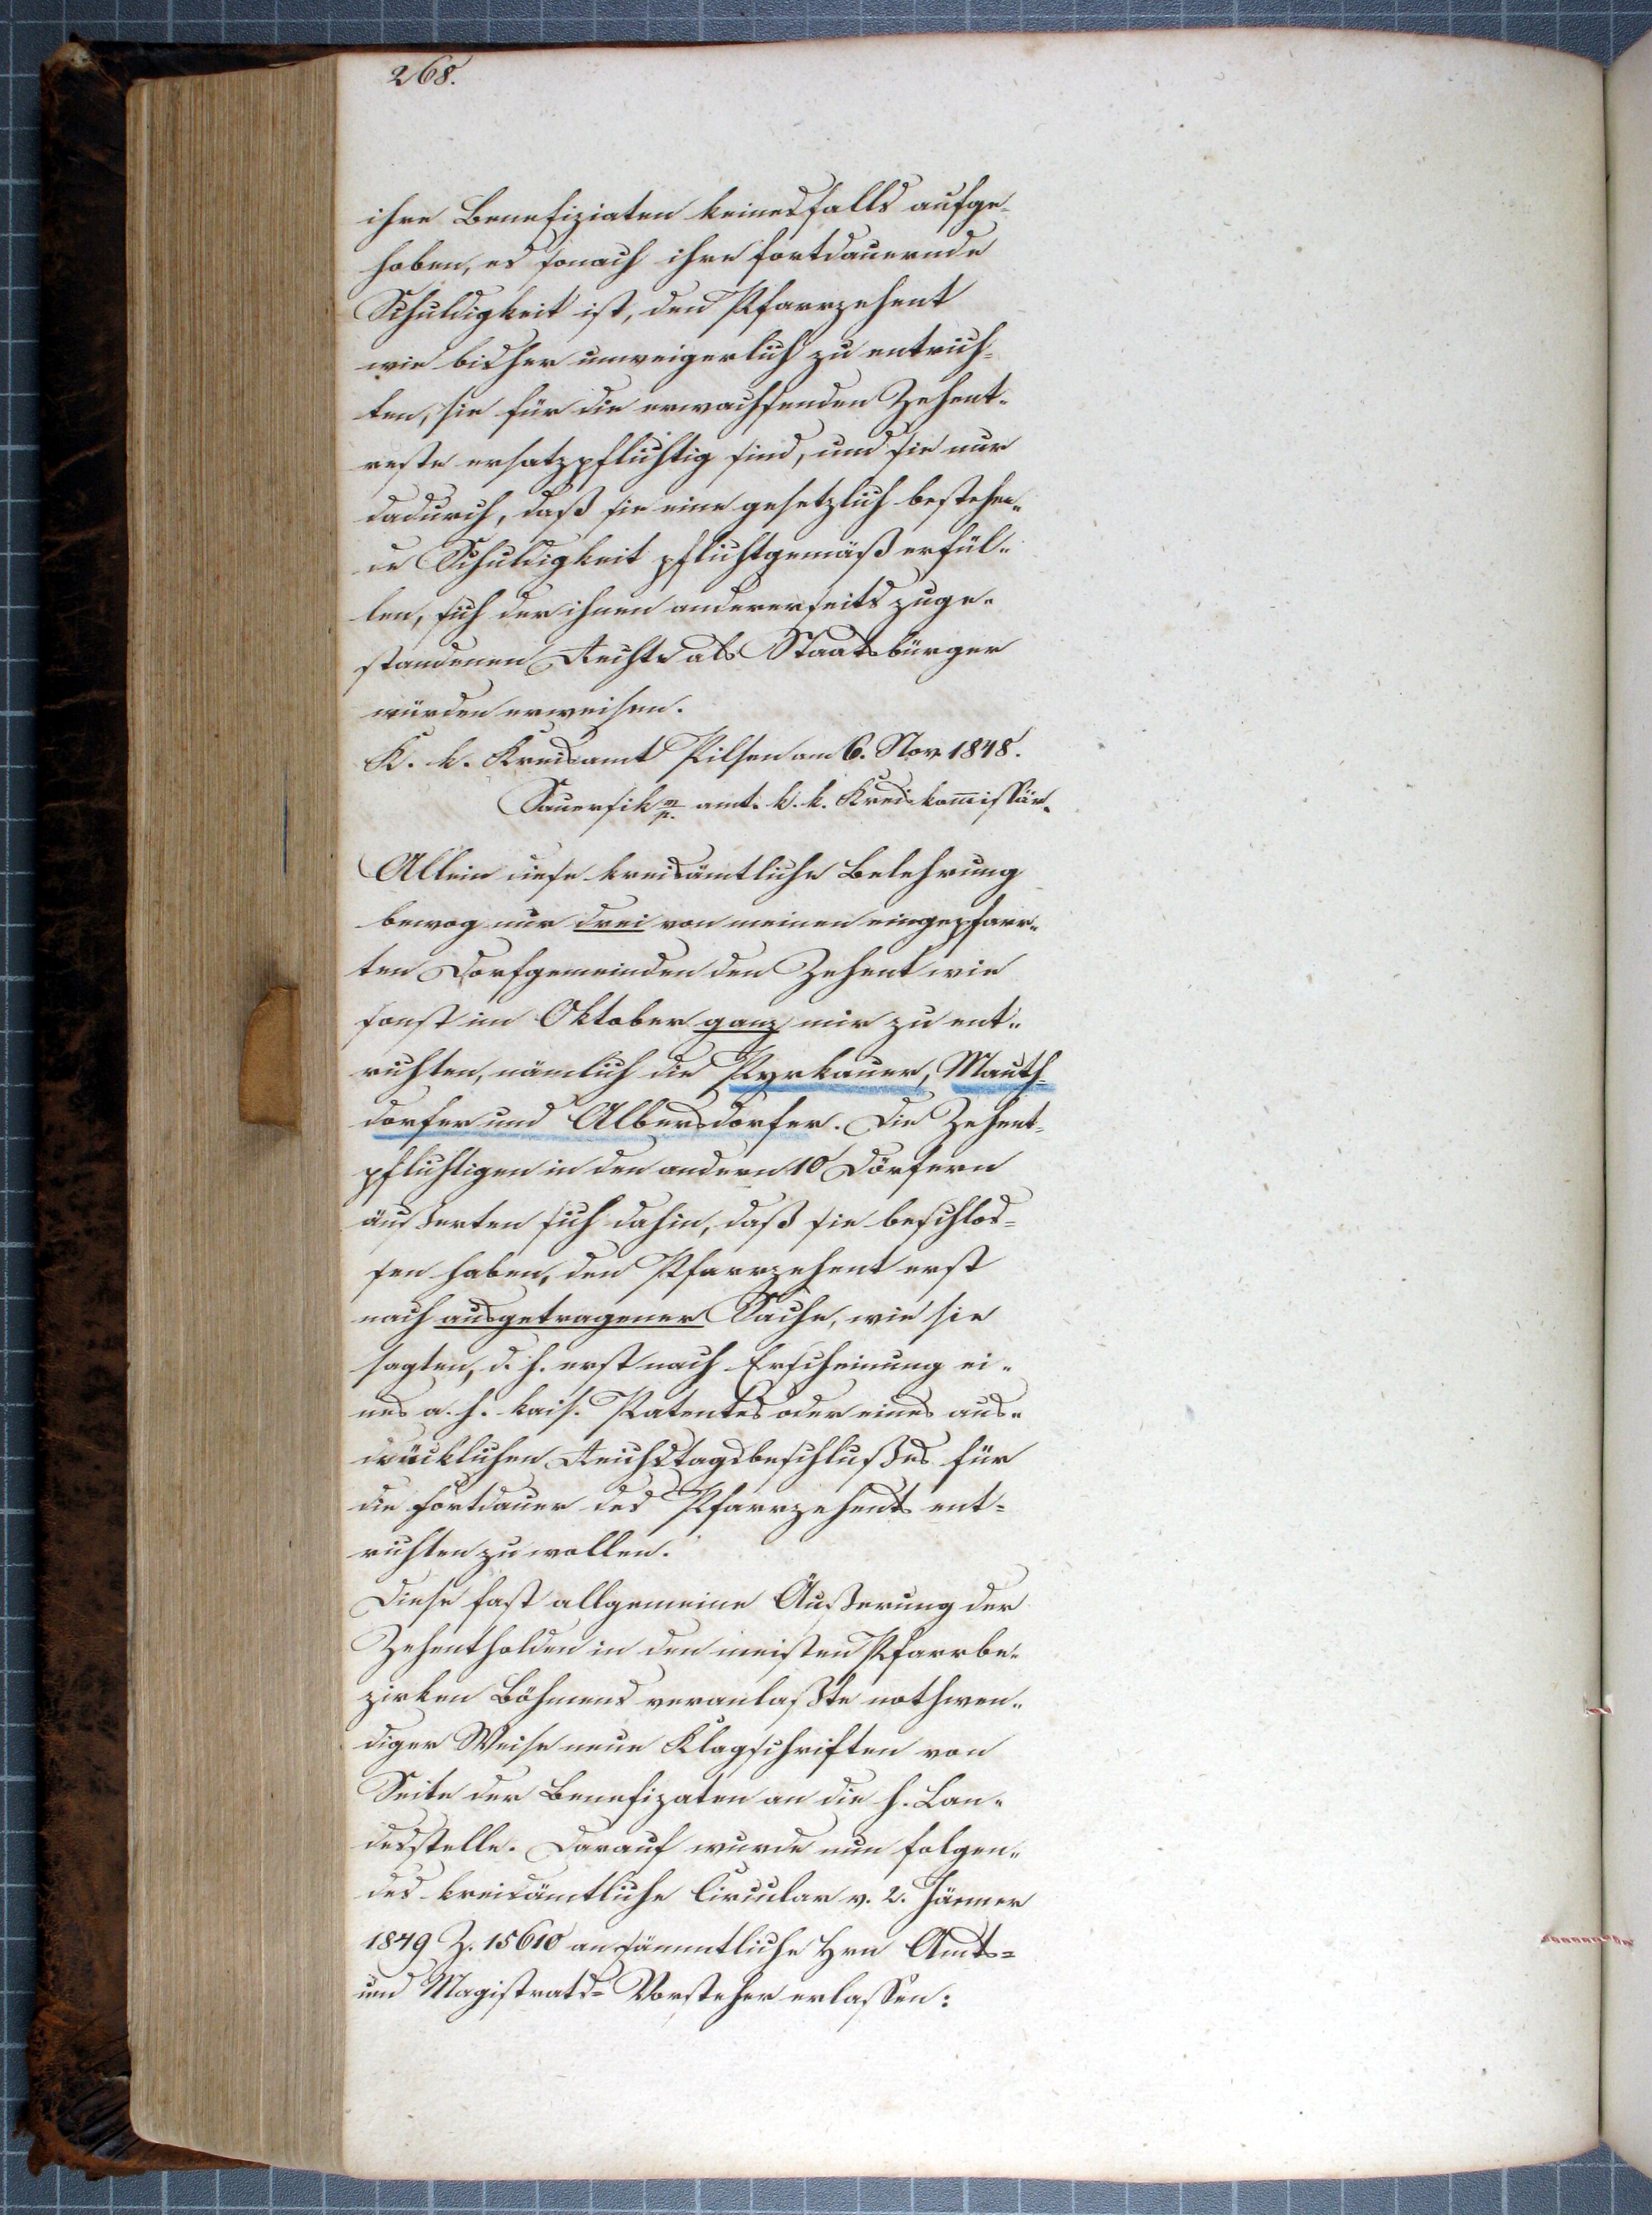 268.
ihre Benefiziaten keinesfalls aufge-
hoben, es sonach ihre fortdauernde
Schuldigkeit ist, den Pfarrzehent
wie bisher unweigerlich zu entrich-
ten, sie für die erwachsenden Zehent-
reste ersatzpflichtig sind, und sie nur
dadurch, daß sie eine gesetzlich bestehen-
de Schuldigkeit pflichtgemäß erfül-
len, sich der ihnen andererseits zuge-
standenen Rechte als Staatsbürger
würden erweisen.
K. k. Kreisamt Pilsen am 6. Nov 1848.
m/p. amt. k. k. Kreiskom̅issär.
Allein diese kreisämtliche Belehrung
bewog nur drei von meinen eingepfarr-
ten Dorfgemeinden den Zehent wie
sonst im Oktober ganz mir zu ent-
richten, nämlich die Pyrkauer, Mauth-
dorfer und Albersdorfer. Die Zehent-
pflichtigen in den andern 10 Dörfern
äußerten sich dahin, daß sie beschlos-
sen haben, den Pfarrzehent erst
nach ausgetragener Sache, wie sie
sagten, d. h. erst nach Erscheinung ei-
nes a. h. kais. Patentes oder eines aus-
drücklichen Reichstagsbeschlußes für
die Fortdauer des Pfarrzehents ent-
richten zu wollen.
Diese fast allgemeine Äußerung der
Zehentholden in den meisten Pfarrbe-
zirken Böhmens veranlaßte nothwen-
diger Weise neue Klagschriften von
Seite der Benefizaten an die h. Lan-
desstelle. Darauf wurde nun folgen-
des kreisämtliche Circular v. 2. Jänner
1849 Z. 15610 an sämmtliche Hrn Amts-
und Magistrats-Vorsteher erlassen: